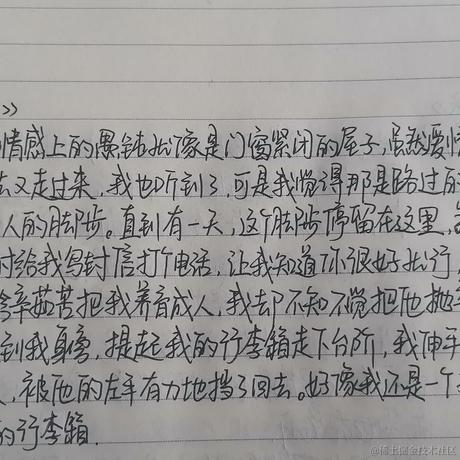 >>
情感上的愚钝就像是门窗紧闭的屋子,虽然爱情
去又走过来,我也听到了,可是我觉得那是路过的
人的脚步。直到有一天,这个脚步停留在这里,
时给我写封信打个电话,让我知道你很好就行,
含辛茹苦把我养育成人,我却不知不觉把他抛弃
到我身旁,提起我的行李箱走下台阶,我伸手
,被他的左手有力地挡了回去。好像我还是一个
的行李箱.
@稀土掘金技术社区